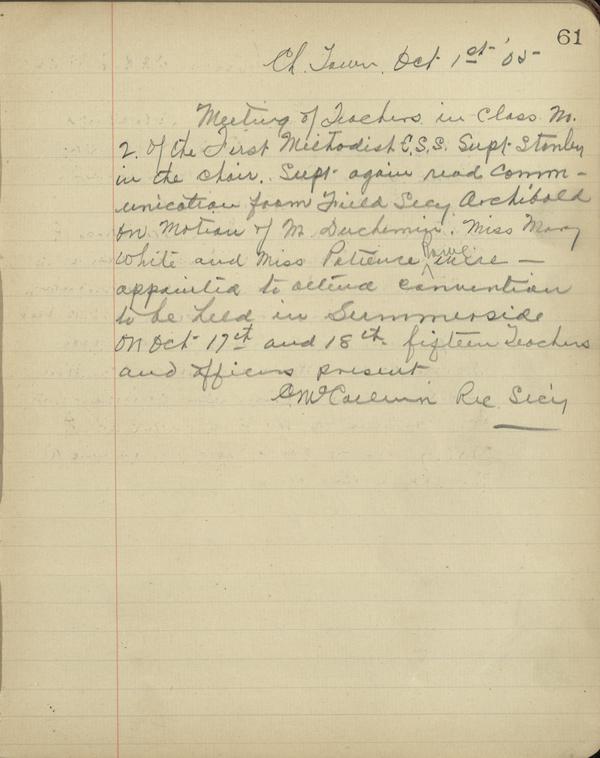 61
Ch. Town, Oct 1st '05
Meeting of Teachers in Class No.
2. of the First Methodist S.S. Supt Stanley
in the chair. Supt again read Comm-
unication from Field Secy Archibald
on Motion of M Duchemin. Miss Mary
White and Miss Patience were —
appointed to attend convention
to be held in Summerside
on Oct 17th and 18th. fifteen Teachers
and officers present
Rec Sec'y